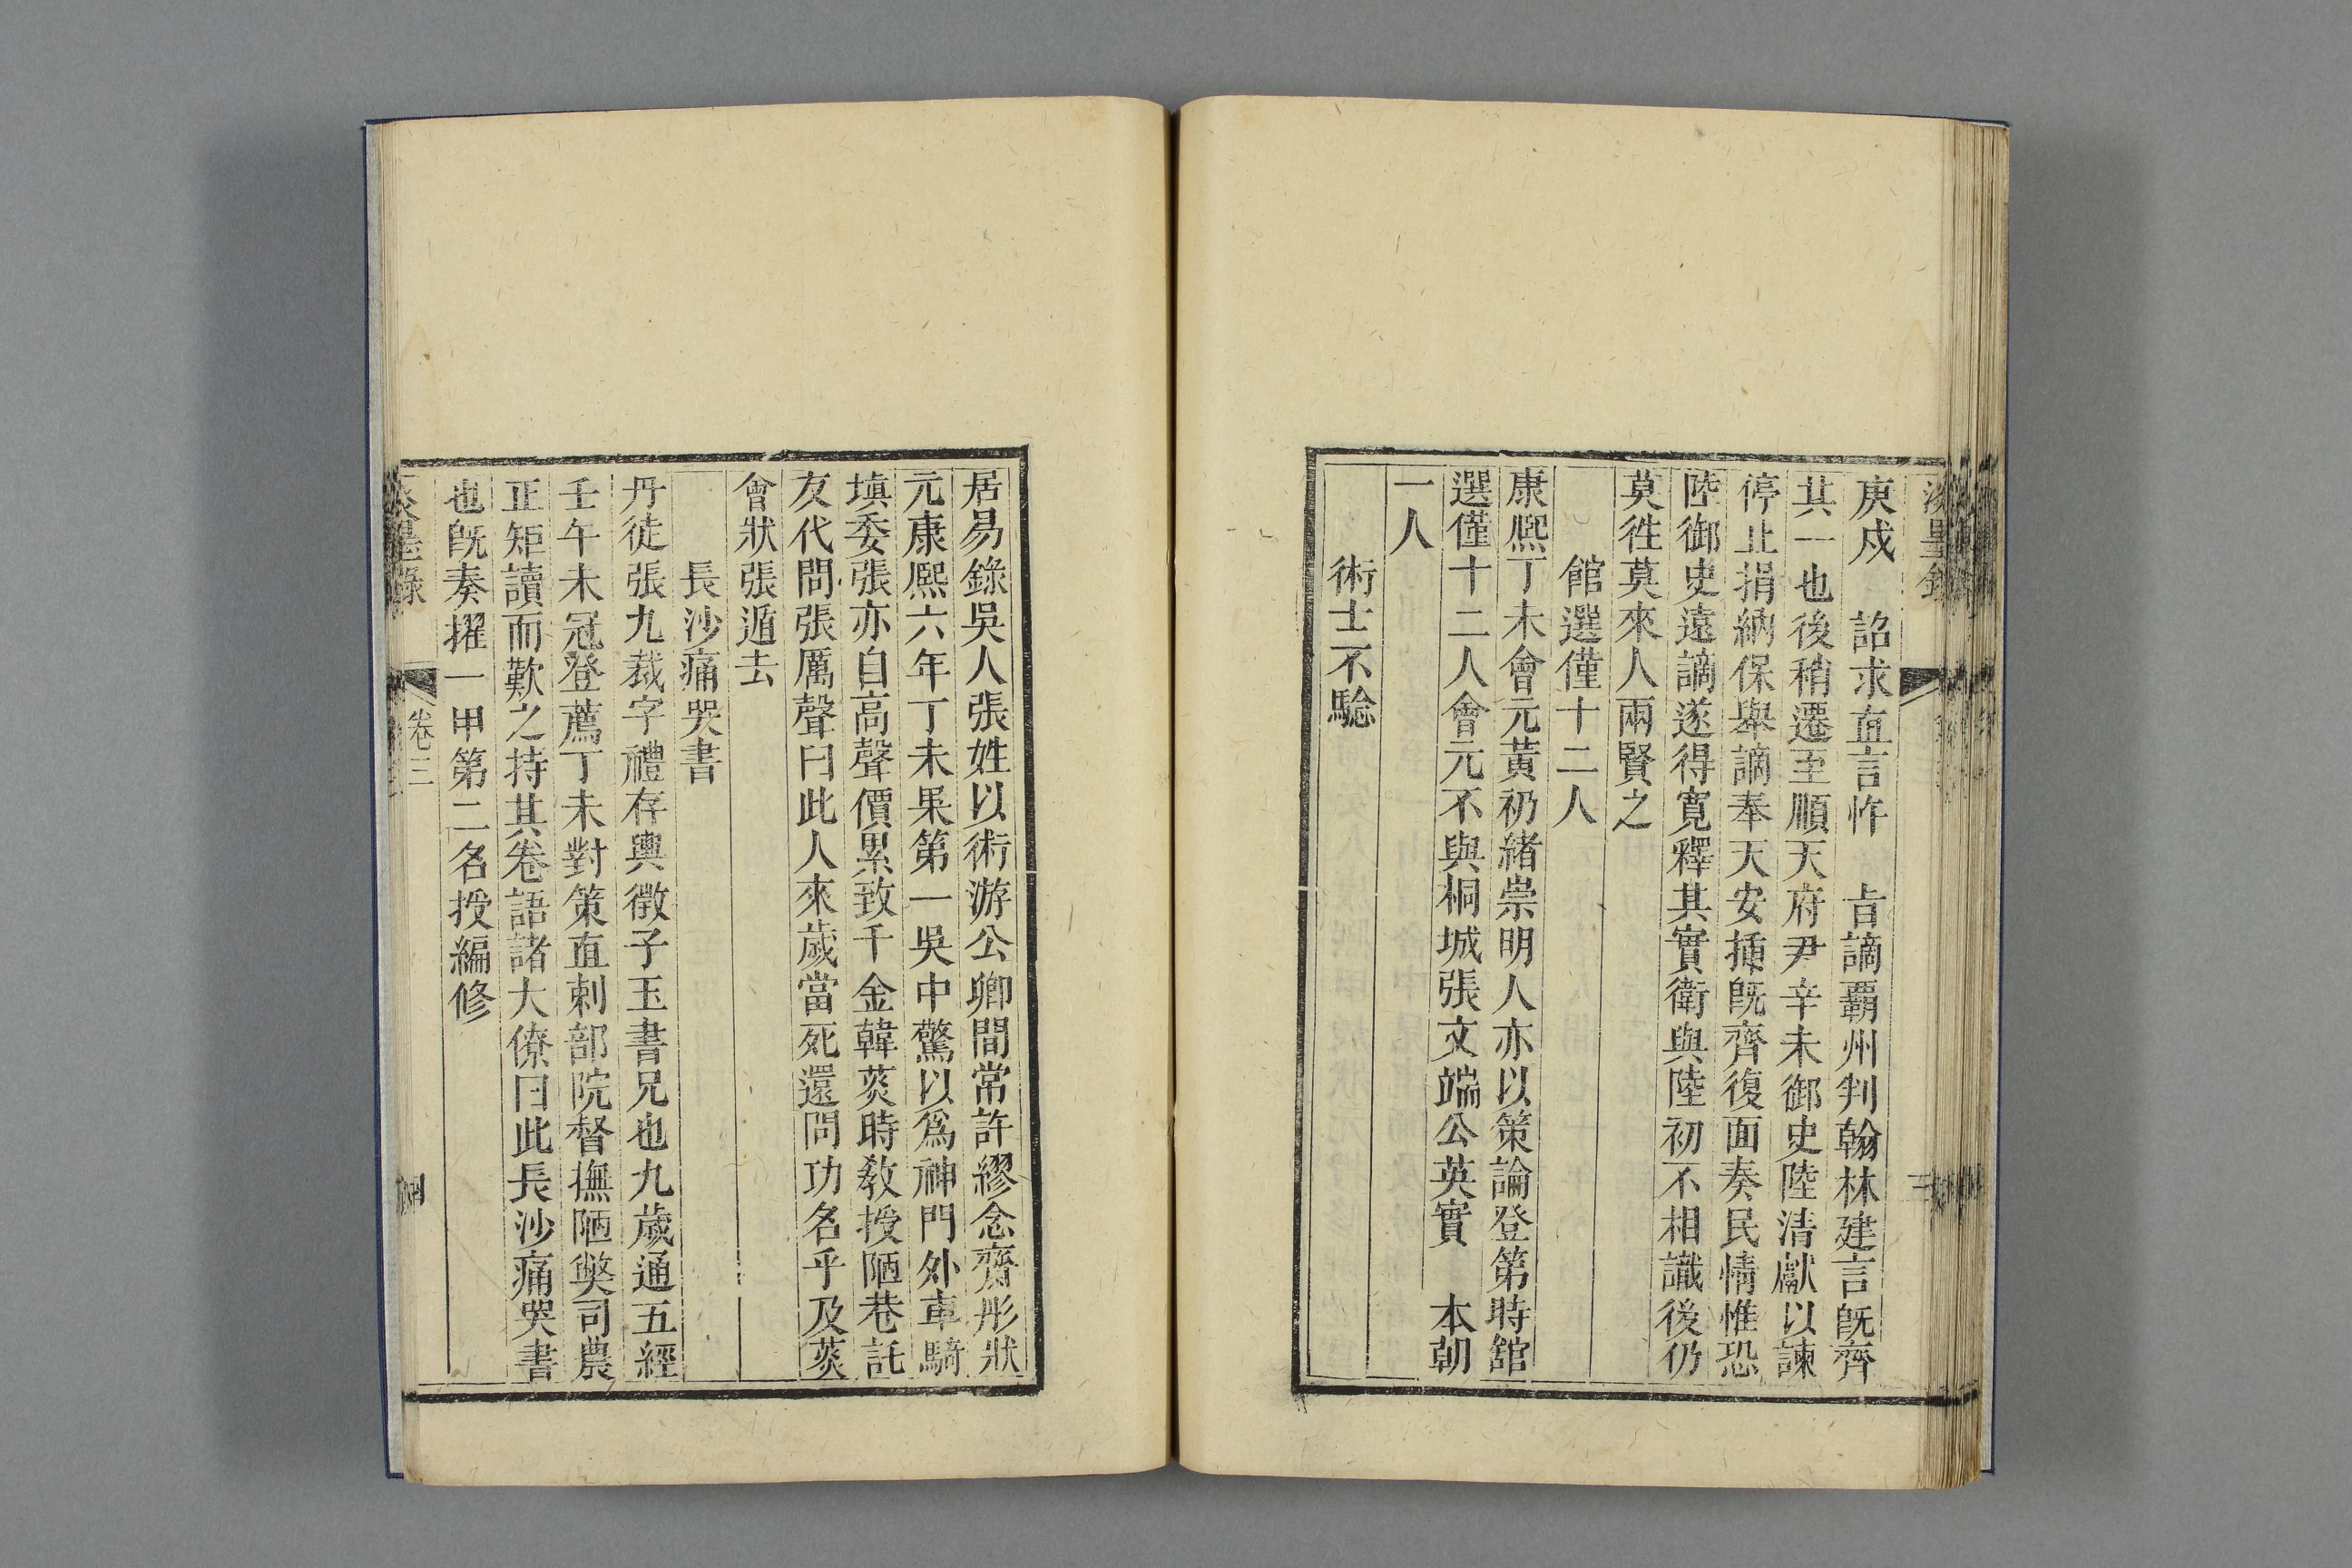 庚戍　詔求直言忤　㫖謫覇州判翰林建言旣齊
其一也後稍遷至順天府尹辛未御史陸清獻以諫
停止捐納保舉謫奉天安揷旣齊復面奏民情惟恐
陸御史遠謫遂得寛釋其實衛與陸初不相識後仍
莫徃莫來人兩賢之
館選僅十二人
康熙丁未會元黃礽緒崇明人亦以策論登第時舘
選僅十二人會元不與桐城張文端公英實　本朝
一人
術士不驗
居易錄吳人張姓以術游公卿間常許繆念齋彤狀
元康熙六年丁未果第一吳中驚以爲神門外車騎
塡委張亦自高聲價累致千金韓菼時敎授陋巷託
友代問張厲聲曰此人來歲當死還問功名乎及菼
會狀張遁去
長沙痛哭書
丹徒張九裁字禮存輿徵子玉書兄也九歲通五經
壬午未冠登薦丁未對策直刺部院督撫陋獘司農
正矩讀而歎之持其卷語諸大僚曰此長沙痛哭書
也旣奏擢一甲第二名授編修
卷三
四